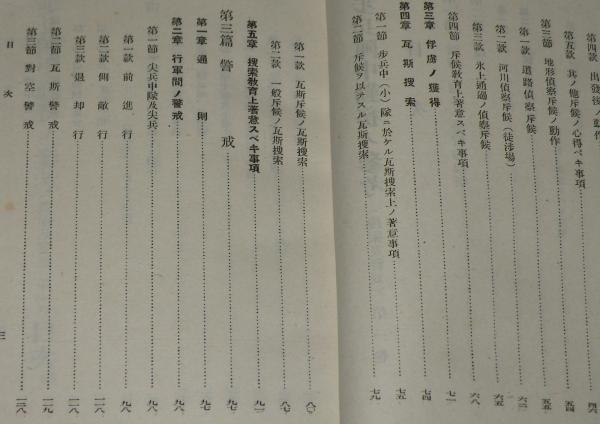 第四款 出發後ノ動作 四六
第五款 其ノ他斥候ノ心得ベキ事項 五四
第三節 地形偵察斥候ノ動作 五五
第一款 道路偵察斥候 六二
第二款 河川偵察斥候(徒渉場) 六五
第三款 氷上通過ノ偵察斥候 六八
第四節 斥候敎育上著意スベキ事項 七一
第三章 俘虜ノ獲得 七四
第四章 瓦斯搜索 七五
第一節 步兵中(小)隊ニ於ケル瓦斯搜索上ノ著意事項
第二節 斥候ヲ以テスル瓦斯搜索 七九
第一款 瓦斯斥候ノ瓦斯搜索 八〇
第二款 一般斥候ノ瓦斯搜索 八七
第五章 搜索敎育上著意スベキ事項 九一
第三篇 警戒 九七
第一章 通則 九七
第二章 行軍間ノ警戒 九八
第一節 尖兵中隊及尖兵 九八
第一款 前進行 九八
第二款 側敵行 一一八
第三款 退却行 一一八
第二節 瓦斯警戒 一一八
第三節 對空警戒 一二八
目次
三